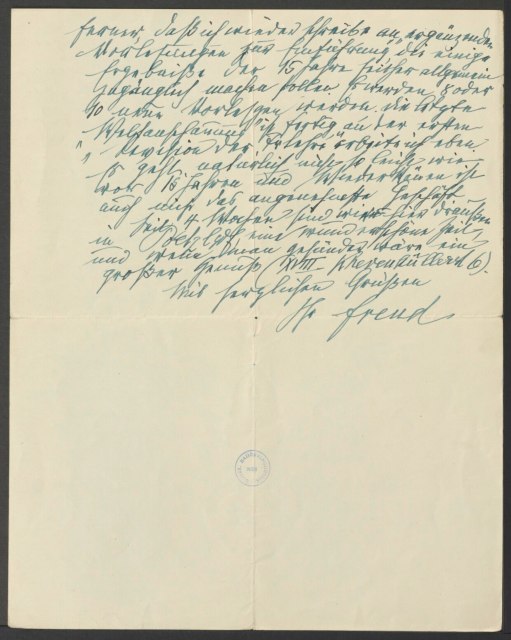 ferner, daß ich wieder schreibe an "ergänzenden
Vorlesungen zur Einführung", die einige
Ergebnisse der 15 Jahre seither allgemein
zugänglich machen sollen. Es werden 8 oder
10 neue Vorlesungen werden. die letzte
"Weltanschauung" ist fertig, an der ersten
"Revision der Traumlehre" arbeite ich eben.
Es geht natürlich nicht so leicht wie
vor 15 Jahren und Wiederkäuen ist
auch nicht das angenehmste Geschäft.
Seit 4 Wochen sind wir hier draußen
in Pötzleinsdorf eine wunderschöne Zeit,
und wenn man gesünder wäre ein
großer Genuß (XVIII Khevenhüllerst 6).
Mit herzlichen Grüßen
Ihr Freud